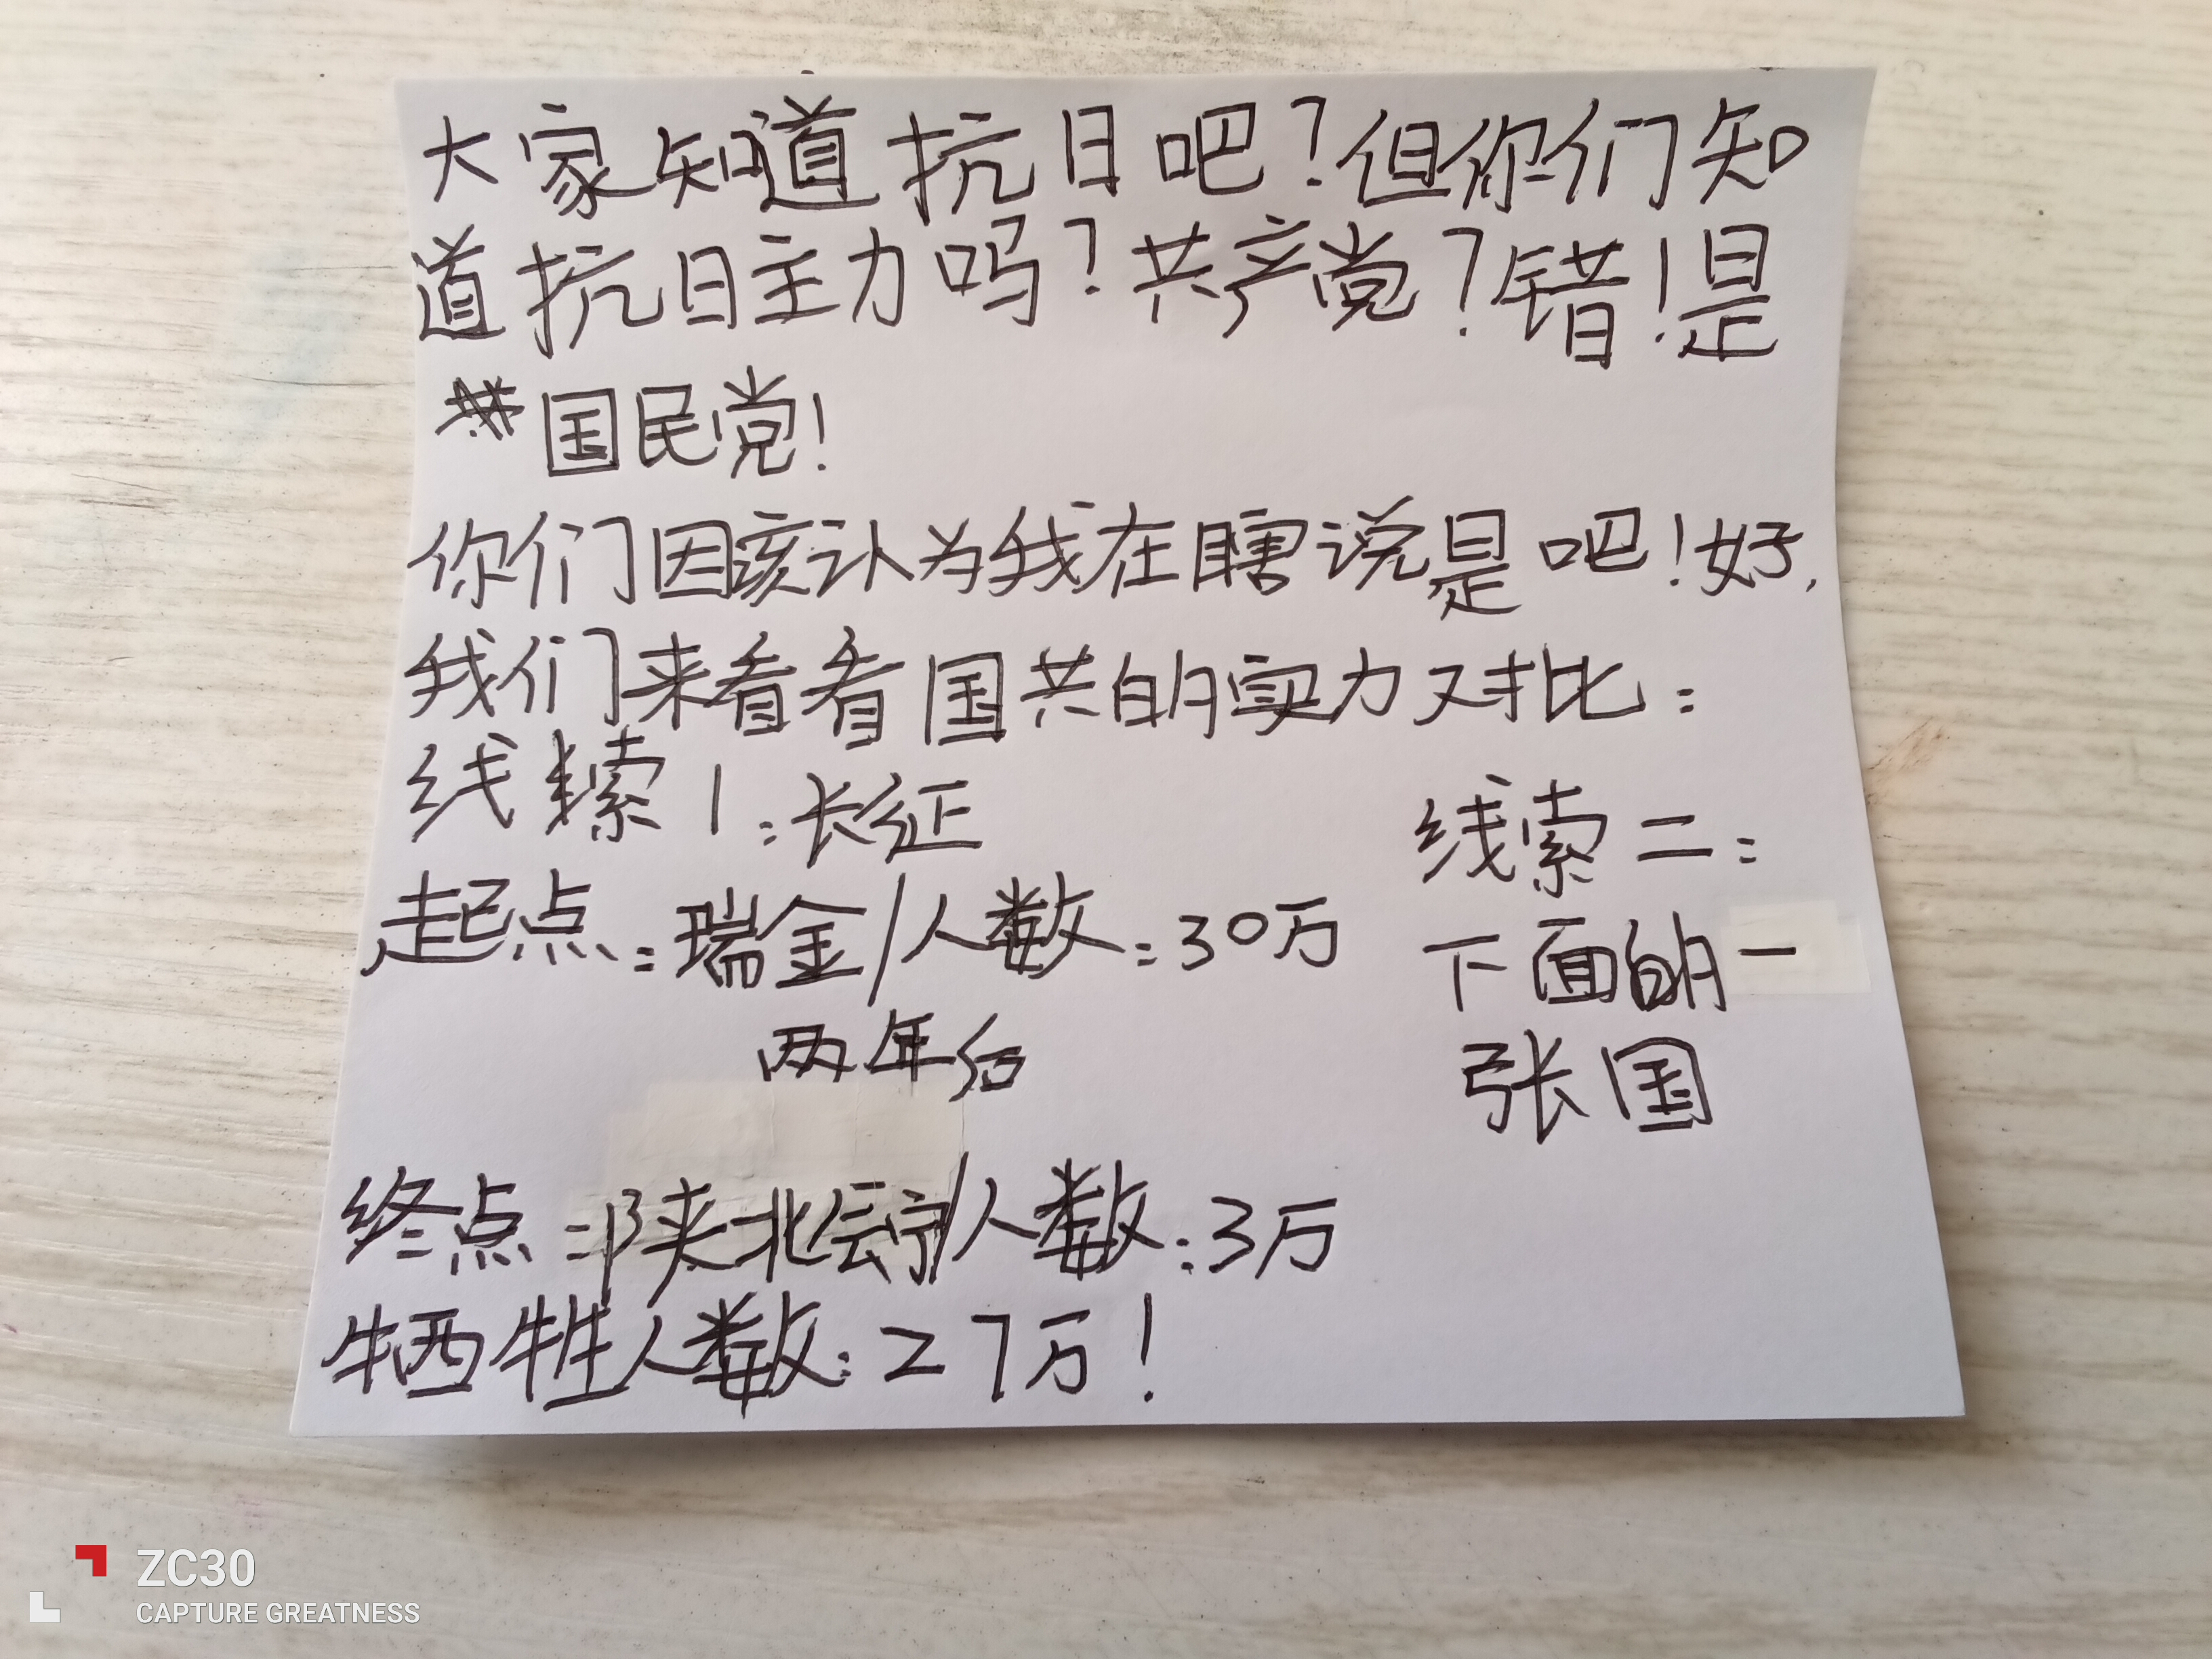 大家知道抗日吧？但你们知
道抗日主力吗？共产党？错！是
国民党！
你们因该认为我在瞎说是吧！好，
我们来看看国共的实力对比：
线索1：长征
起点：瑞金/人数：30万
两年后
终点：陕北会宁/人数：3万
牺牲人数：27万！
线索二：
下面的一
张国
ZC30
CAPTURE GREATNESS